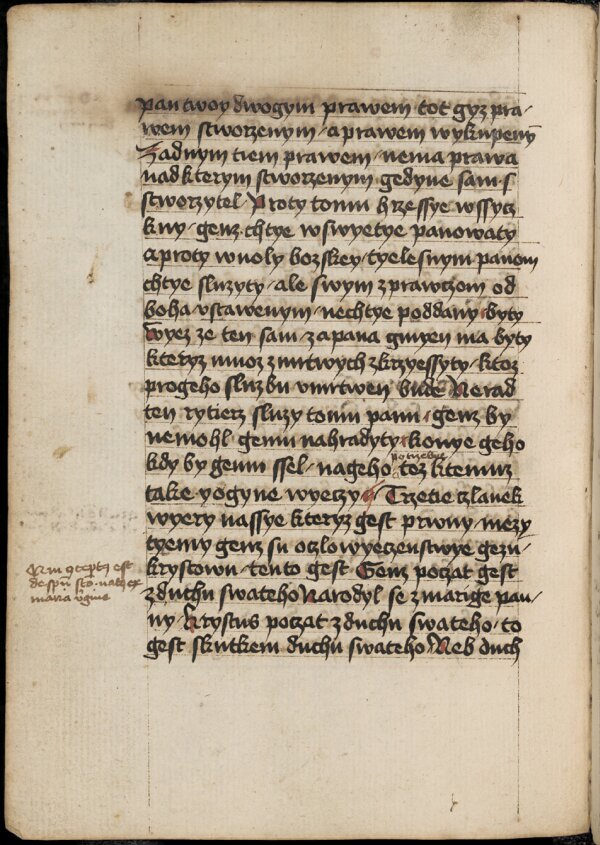 pan twoy dwogym prawem tot gyz pra-
wem stworzenym · a prawem wykupenȳ
Zadnym tiem prawem · nema prawa
nad kterym stworzenym gedyne sam · s
stworzytel Proty tomu hrzessye wssycz
kny · genz chtye w swyetye panowaty
a proty wuoly bozskey · tyelesnym panom
chtye sluzyty · ale swym zprawczom od
boha · vstawenym · nechtye poddany byty
Wyez ze ten sam · za pana gmyen ma byty
kteryz muoz z mrtwych zkrzyessyty · ktoz
pro geho sluzbu vmrtwen bude Nerad
ten rytierz sluzy tomu panu · genz by
nemohl · gemu nahradyty konye geho
kdy by gemu ssel · na geho potrzebye toz k temuz
take y o gyne wyeczy Trzetie czlanek
wyery nassye kteryz gest prwny · mezy
tyemy genz su o czlowyeczenstwye gezu ·
krystowu · tento gest Genz poczat gest
z duchu swateho Narodyl se z marige pan-
ny · Krystus poczat z duchu swateho · to
gest skutkem duchu swateho Neb duch
est
de spū sto · natꝯ ex
maria v̄gine